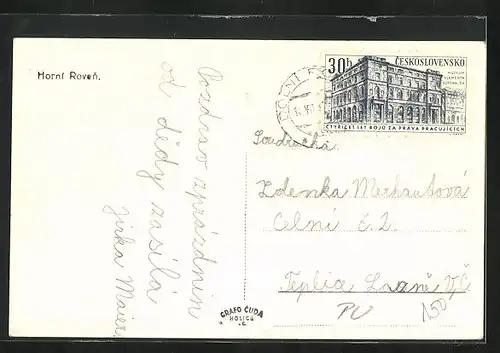 Horní Roveň.
Pozdrav z prázdnin
od dědy zasílá
Jirka Maier
30h ČESKOSLOVENSKO
MUZEUM
KLEMENTA
GOTTWALDA
ČTYŘICET LET BOJŮ ZA PRÁVA PRACUJÍCÍCH
DOLNÍ
Soudružka
Zdenka Merhautová
Celní č. 2.
Teplice Lázně v Č.
PU
150
GRAFO ČUDA
HOLICE